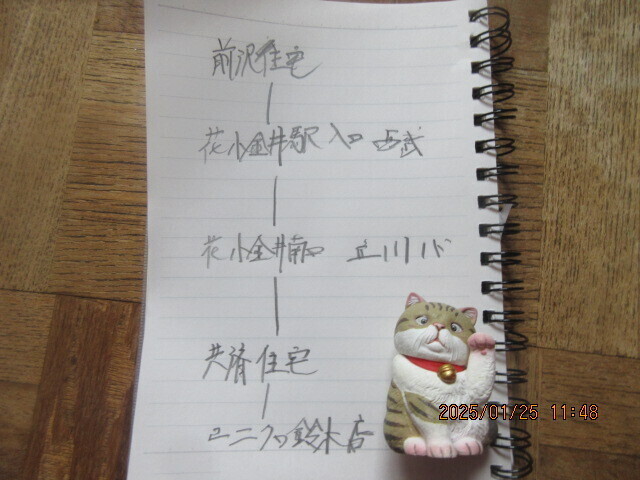 前沢住宅
花小金井駅入口 西武
花小金井南口 立川バ
共済住宅
ユニクロ鈴木店
2025/01/25 11:48